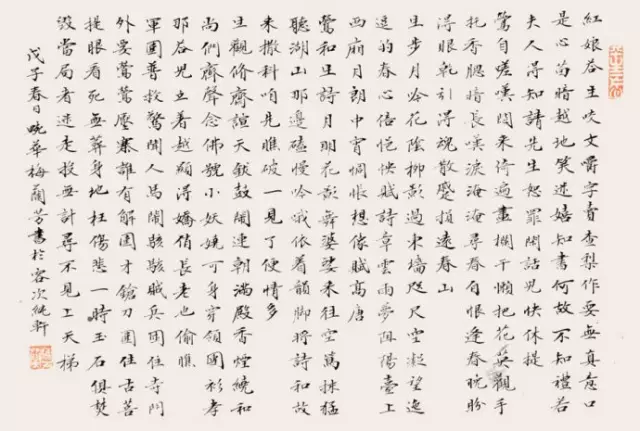 紅娘啓主咬文嚼字賣查梨作耍無真意口
是心苗暗越地笑述嬉知書何故不知禮若
夫人得知請先生恕罪閒話兒快休提
鶯自嗟嘆閒來倚遍畫闌干懶把花英觀手
托香腮暗長嘆淚淹淹尋春自恨逢春晚盼
得眼乾引得魂散蹙損遠春山
生步月吟花陰柳影過東墻咫尺空凝望逸
逗的春心倍怏怏賦詩章雲雨夢阻陽臺上
西廂月朗中宵惆悵想像賦高唐
鶯和生詩月明花影舞婆娑來往空萬揉猛
聽湖山那邊磕慢吟哦依着韻脚將詩和故
來撒科咱先瞧破一見了便情多
生觀修齋諠天鈸鼓鬧連朝滿殿香煙繞和
尚們齊聲念佛號小妖嬈可身穿領國衫孝
那兒立着越顯得嬌俏長老也偷瞧
軍圍普救驚聞人馬鬧駭駭賊兵圍住寺門
外要鶯鶯壓寨誰有解圍才鎗刀圍住古菩
提眼看死無葬身地枉傷悲一時玉石俱焚
毀當局者迷走投無計尋不見上天梯
戊子春日畹華梅蘭芳書於容次純軒